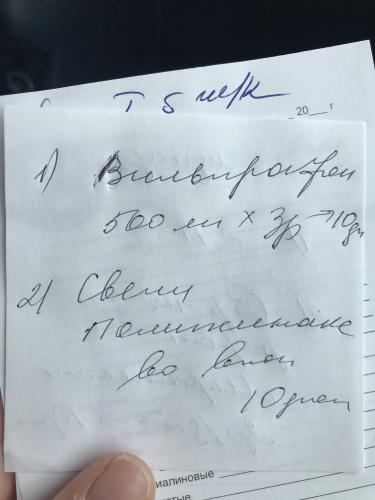 20 г
1) Вильпрафен
500 мг х 3р → 10 дн
2) Свечи
Полижинакс
во влаг
10 дней
иалиновые